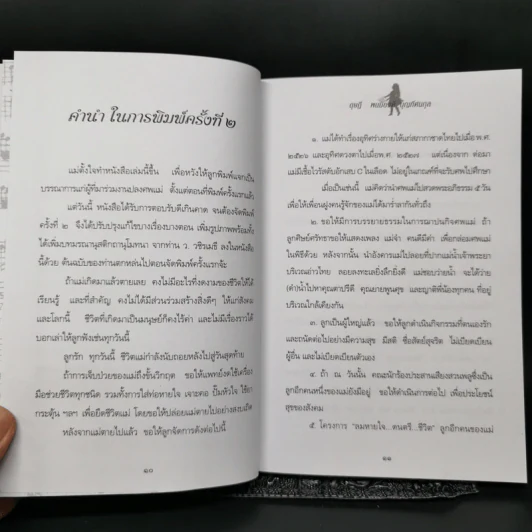 คำนำ ในการพิมพ์ครั้งที่ ๒
แม่ตั้งใจทำหนังสือเล่มนี้ขึ้น เพื่อหวังให้ลูกพิมพ์แจกเป็น
บรรณาการแก่ผู้ที่มาร่วมงานปลงศพแม่ ตั้งแต่ตอนที่พิมพ์ครั้งแรกแล้ว
แต่วันนี้ หนังสือได้รับการตอบรับดีเกินคาด จนต้องจัดพิมพ์
ครั้งที่ ๒ จึงได้ปรับปรุงแก้ไขบางเรื่องบางตอน เพิ่มรูปภาพพร้อมทั้ง
ได้เพิ่มบทมรณานุสติกถานุโลมนา จากท่าน ว. วชิรเมธี ลงในหนังสือ
นี้ด้วย ต้นฉบับของท่านตกหล่นไปตอนจัดพิมพ์ครั้งแรกจ้ะ
ถ้าแม่เกิดมาแล้วตายเลย คงไม่มีอะไรที่งดงามของชีวิตให้ได้
เรียนรู้ และที่สำคัญ คงไม่ได้มีส่วนร่วมสร้างสิ่งดีๆ ให้แก่สังคม
และโลกนี้ ชีวิตที่เกิดมาเป็นมนุษย์ก็คงไร้ค่า และไม่มีเรื่องราวได้
บอกเล่าให้ลูกฟังเช่นทุกวันนี้
ลูกรัก ทุกวันนี้ ชีวิตแม่กำลังนับถอยหลังไปสู่วันสุดท้าย
ถ้าการเจ็บป่วยของแม่ถึงขั้นวิกฤต ขอให้แพทย์งดใช้เครื่อง
มือช่วยชีวิตทุกชนิด รวมทั้งการใส่ท่อหายใจ เจาะคอ ปั๊มหัวใจ ใช้ยา
กระตุ้น ฯลฯ เพื่อยืดชีวิตแม่ โดยขอให้ปล่อยแม่ตายไปอย่างสงบเถิด
หลังจากแม่ตายไปแล้ว ขอให้ลูกจัดการดังต่อไปนี้
๑๐
๑. แม่ได้ทำเรื่องอุทิศร่างกายให้แก่สภากาชาดไทยไปเมื่อ พ.ศ.
และอุทิศดวงตาไปเมื่อ แต่เนื่องจาก ต่อมา
แม่มีเชื้อไวรัสตับอักเสบ C ในเลือด ไม่อยู่ในเกณฑ์ที่จะรับศพไปศึกษา
เมื่อเป็นเช่นนี้ แม่คิดว่านำศพแม่ไปสวดพระอภิธรรม ๕ วัน
เพื่อให้เพื่อนฝูงตลอดจนคนรู้จักของแม่ได้มาร่ำลากันก็ดี
๒. ขอให้มีการบรรยายธรรมในการฌาปนกิจศพแม่ ถ้า
ลูกศิษย์ศรัทธาขอให้แสดงเพลง แม่จ๋า คนดีมีค่า เพื่อกล่อมศพแม่
ในพิธีด้วย หลังจากนั้น นำอังคารแม่ไปลอยที่ปากแม่น้ำเจ้าพระยา
บริเวณอ่าวไทย ลอยลงทะเลยิ่งลึกยิ่งดี แม่ชอบว่ายน้ำ จะได้ว่าย
(ดำ)น้ำไปหาคุณตาปรีดี คุณยายพูนศุข และญาติพี่น้องทุกคน ที่อยู่
บริเวณใกล้เคียงกัน
๓. ลูกเป็นผู้ใหญ่แล้ว ขอให้ลูกดำเนินกิจกรรมที่ตนเองรัก
และถนัดต่อไปอย่างมีความสุข มีสติ ซื่อสัตย์สุจริต ไม่เบียดเบียน
ผู้อื่น และไม่เบียดเบียนตัวเอง
๔. ถ้า ณ วันนั้น คณะนักร้องประสานเสียงสวนพลูซึ่งเป็น
ลูกอีกคนหนึ่งของแม่ยังมีอยู่ ขอให้ดำเนินการต่อไป เพื่อประโยชน์
สุขของสังคม
๕. โครงการ "ลมหายใจ...ดนตรี...ชีวิต" ลูกอีกคนของแม่
๑๑